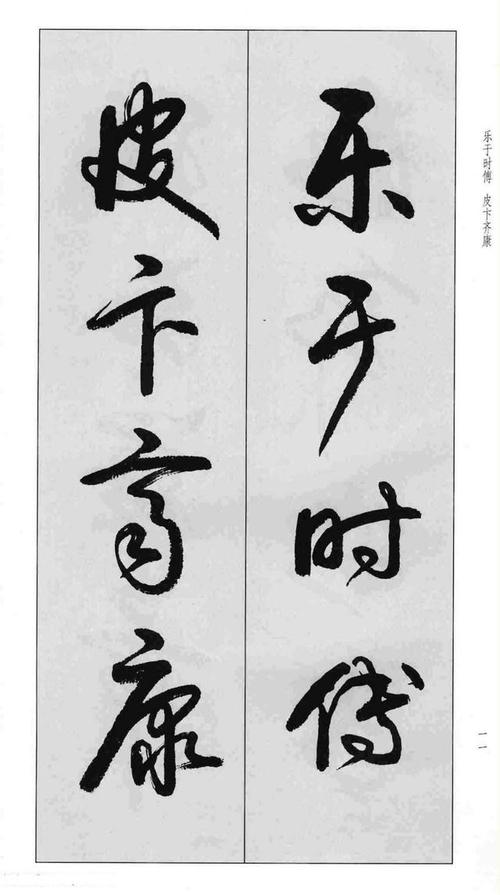 乐于时傅
皮卞齐康
乐于时傅 皮卞齐康
一一